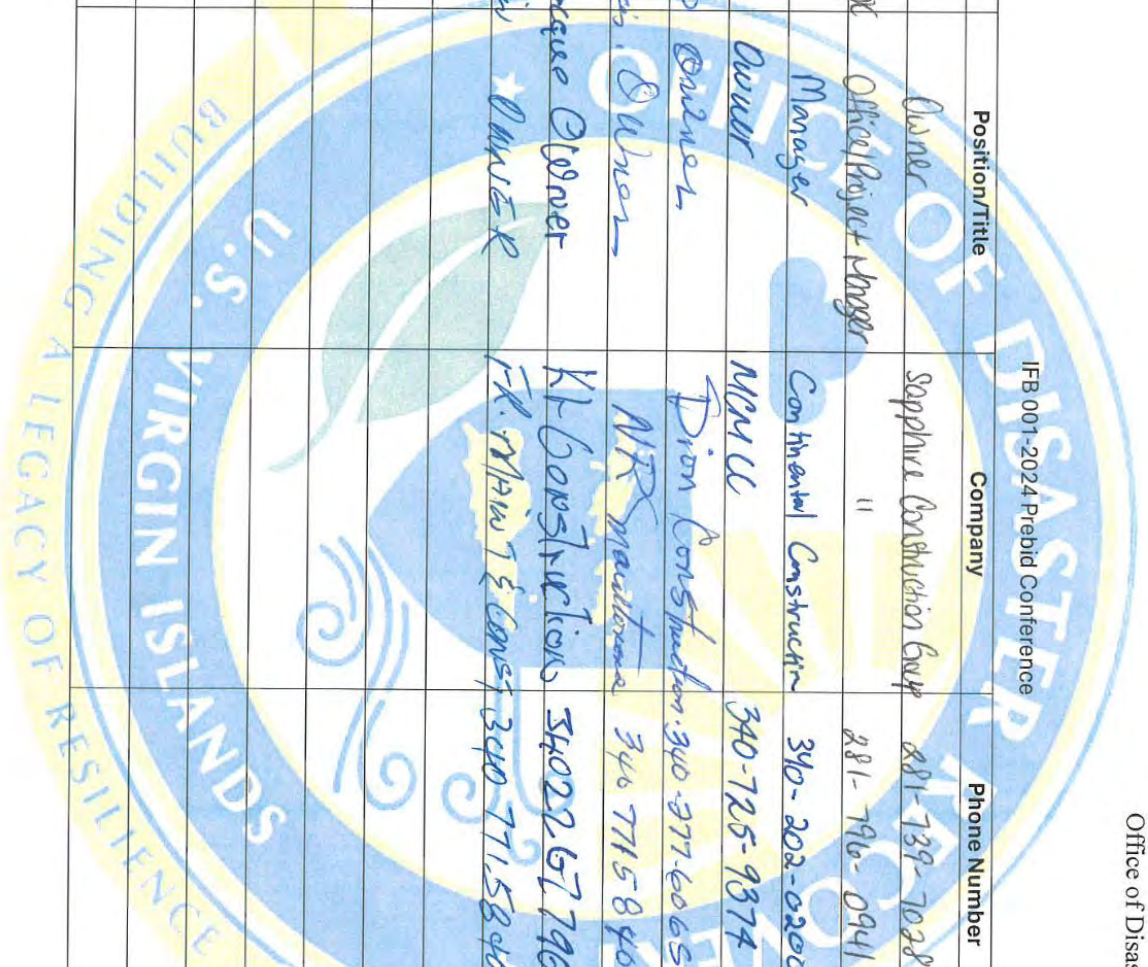 Office of Disas
IFB 001-2024 Prebid Conference
Position/Title Company Phone Number
Owner Sapphire Construction Group 281-739-7028
Office/Project Manager " 281-796-0941
Manager Continental Construction 340-202-0200
Owner MCM LLC 340-725-9374
Owner Dion Construction 340-277-6065
Owner NR 340 771 5840
Owner KL Construction 340 226 7796
OWNER F.R. MAINT & Const, 340 771.5840
OFFICE OF DISASTER RECO
U.S. VIRGIN ISLANDS
BUILDING A LEGACY OF RESILIENCE